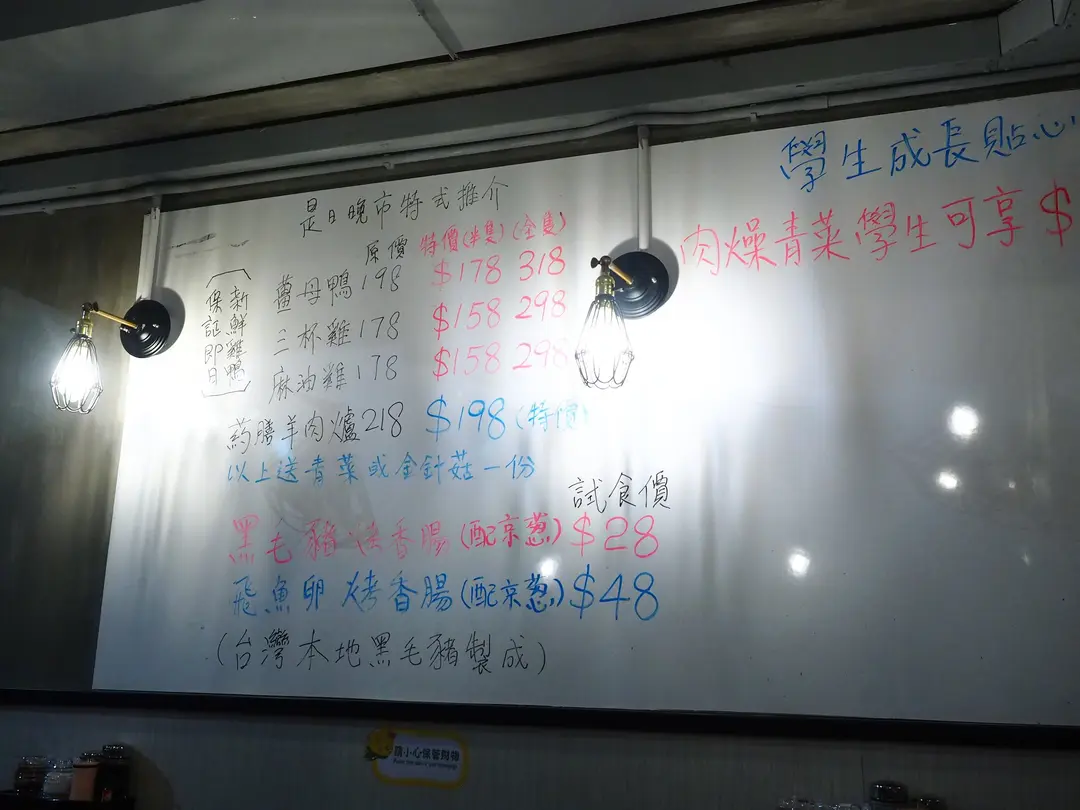 是日晚市特式推介
原價 特價(半隻)(全隻)
薑母鴨 198 $178 318
三杯雞 178 $158 298
麻油雞 178 $158 298
(新鮮雞鴨
保証即日)
葯膳羊肉爐 218 $198 (特價)
以上送青菜或金針菇一份
試食價
黑毛豬 香腸 (配京蔥) $28
飛魚卵 烤香腸 (配京蔥) $48
(台灣本地黑毛豬製成)
學生成長貼心
肉燥青菜學生可享 $
請小心保管財物